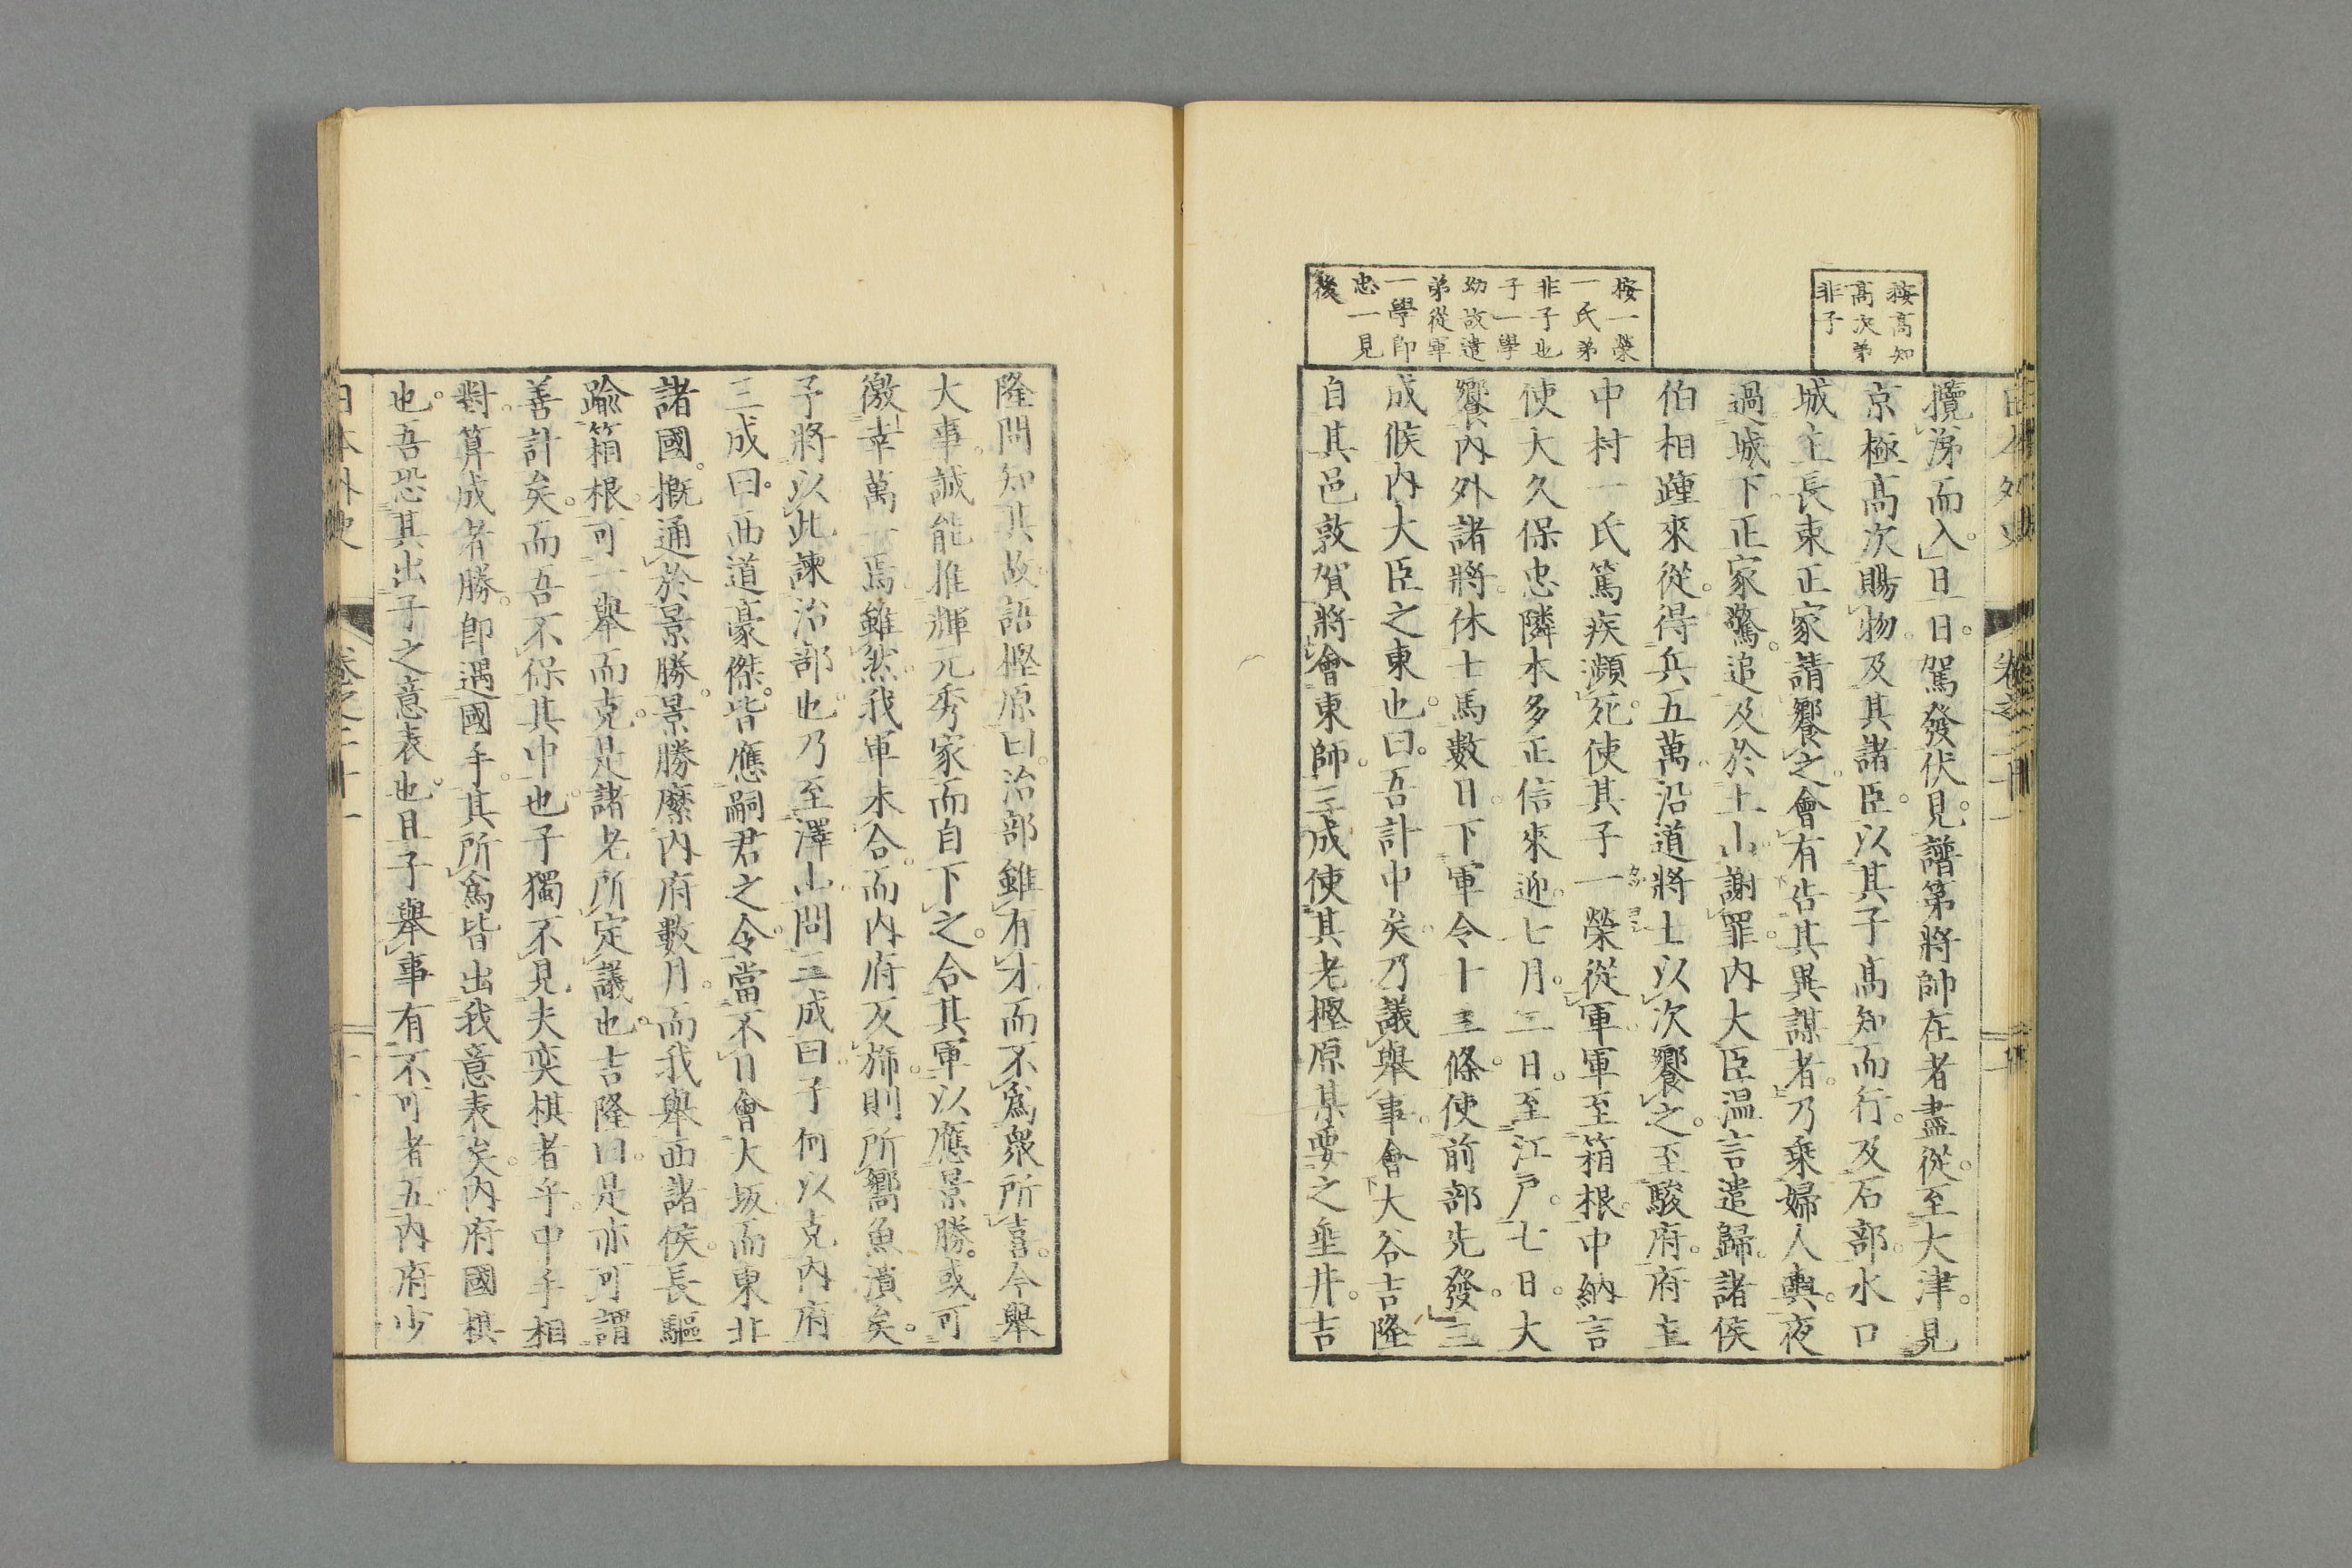 按高知
高次弟
非子
按一榮
一氏弟
非子也
子一學
幼故遣
弟從軍
一學即
忠一見
後
攬涕而入旦日駕發伏見譜第將帥在者盡從至大津見
京極高次賜物及其諸臣以其子高知而行及石部水口
城主長束正家請饗之會有告其異謀者乃乘婦人輿夜
過城下正家驚追及於土山謝罪內大臣温言遣歸諸侯
伯相踵來從得兵五萬沿道將士以次饗之至駿府府主
中村一氏篤疾瀕死使其子一榮從軍軍至箱根中納言
使大久保忠隣本多正信來迎七月二日至江戸七日大
饗內外諸將休士馬數日下軍令十三條使前部先發三
成候內大臣之東也曰吾計中矣乃議舉事會大谷吉隆
自其邑敦賀將會東師三成使其老樫原某要之垂井吉
隆問知其故語樫原曰治部雖有才而不爲衆所喜今舉
大事誠能推輝元秀家而自下之合其軍以應景勝或可
徼幸萬一焉雖然我軍未合而內府反旆則所嚮魚潰矣
子將以此諫治部也乃至澤山問三成曰子何以克內府
三成曰西道豪傑皆應嗣君之令當不日會大坂而東北
諸國概通於景勝景勝縻內府數月而我舉西諸侯長驅
踰箱根可一舉而克是諸老所定議也吉隆曰是亦可謂
善計矣而吾不保其中也子獨不見夫奕棋者乎中手相
對算成者勝即遇國手其所爲皆出我意表矣內府國棋
也吾恐其出子之意表也且子舉事有不可者五內府少
日本外史
卷之二十一